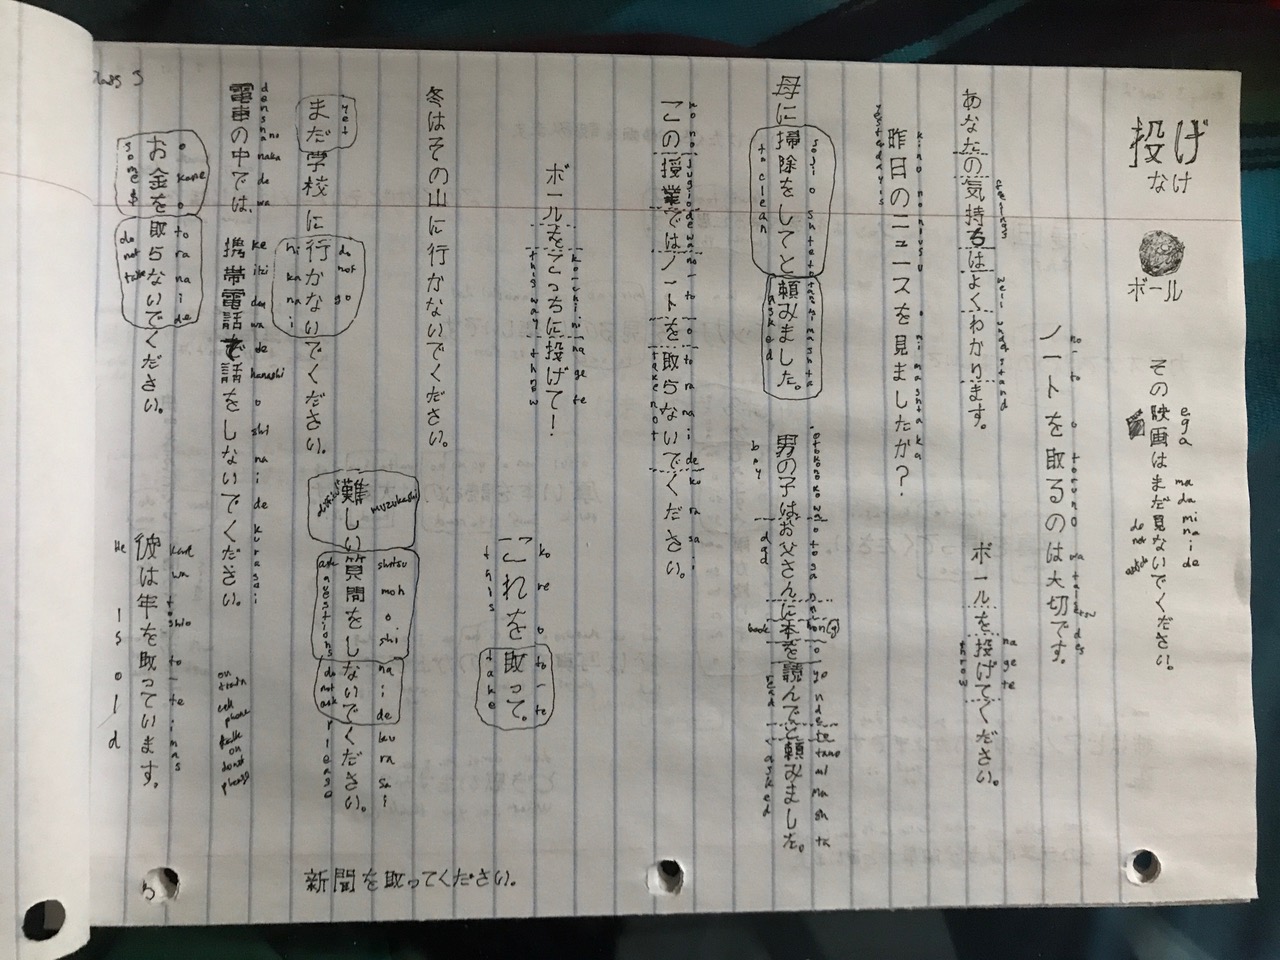 投げ
なけ
ボール
ega mada minaide
その映画はまだ見ないでください。
do not
no-to o toruno wa taisetz des
ノートを取るのは大切です。
feelings well understand
あなたの気持ちはよくわかります。
na ge te
ボールを投げてください。
throw
kino no niusu o mimashtaka
昨日のニュースを見ましたか？
yesterday's
soji o shtetotanomimashta
母に掃除をしてと頼みました。
to clean asked
男の子はお父さんに本を読んでと頼みました。
boy dad book read asked
kono jugiodewa no-to o toranaide kudasai
この授業ではノートを取らないでください。
take not
ko-chi ni na ge te
ボールをこっちに投げて！
this way throw
ko re o to-te
これを取って。
this take
冬はその山に行かないでください。
yet do not go
まだ学校に行かないでください。
hi ka na i
muzukashi shitsu moh o shi na i de ku ra sai
難しい質問をしないでください。
ask questions do not ask please
densha no naka de wa keitai denwa de hanashi o shi na i de kurasai
電車の中では、携帯電話で話をしないでください。
on train cell phone talk on do not please
o kane o to ra na i de
お金を取らないでください。
some $ do not take
kare wa toshio to-te imas
彼は年を取っています。
He is old
新聞を取ってください。